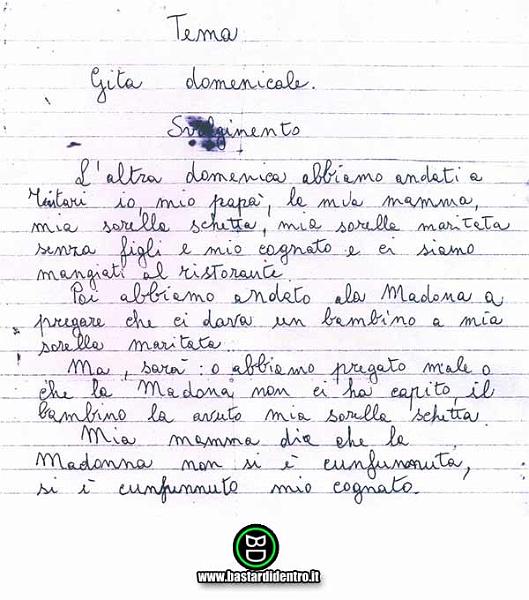 Tema
Gita domenicale.
Svolgimento
L'altra domenica abbiamo andati a
Tintari io, mio papà, la mia mamma,
mia sorella schetta, mia sorella maritata
senza figli e mio cognato e ci siamo
mangiati al ristorante.
Poi abbiamo andato ala Madona a
pregare che ci dava un bambino a mia
sorella maritata.
Ma, sarà: o abbiamo pregato male o
che la Madona non ci ha capito, il
bambino la avuto mia sorella schetta.
Mia mamma dic che la
Madonna non si è cunfunnuta,
si è cunfunnuto mio cognato.
www.bastardidentro.it